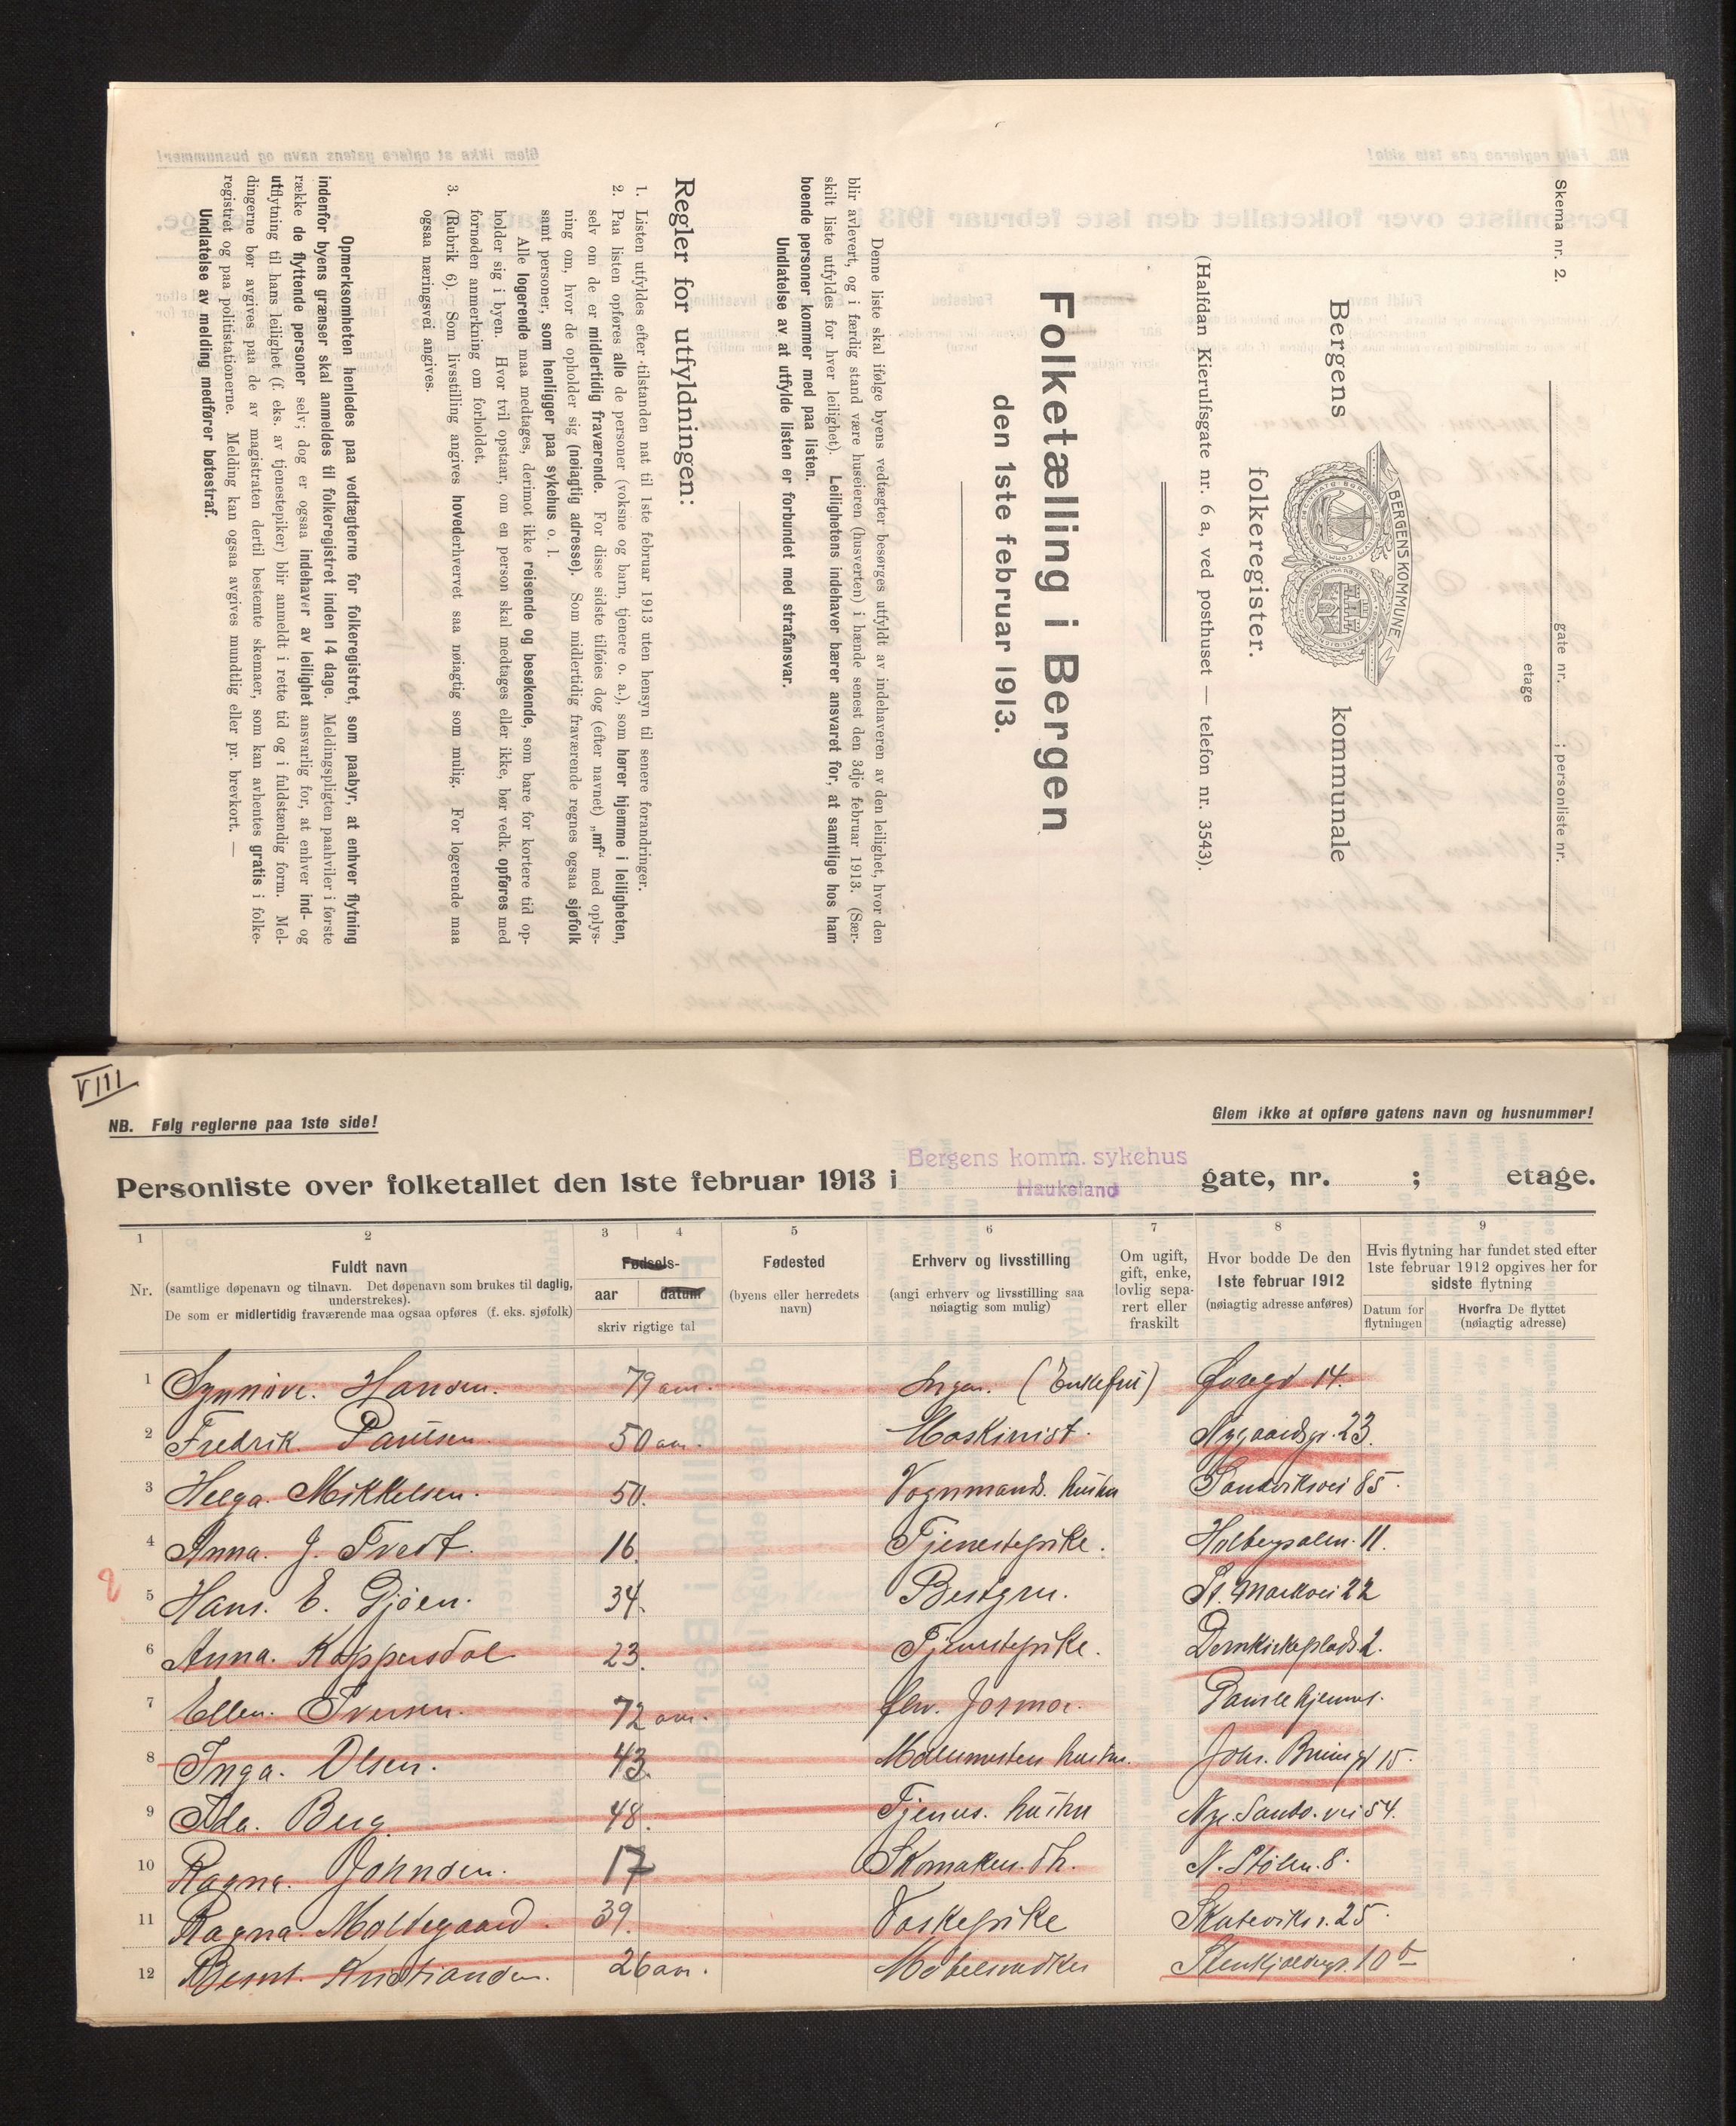 Skema nr. 2.
gate nr. ; personliste nr.
etage
Bergens kommunale
BERGENS KOMMUNE
folkeregister.
(Halfdan Kierulfsgate nr. 6 a, ved posthuset — telefon nr. 3543).
Folketælling i Bergen
den 1ste februar 1913.
Denne liste skal ifølge byens vedtægter besørges utfyldt av indehaveren av den leilighet, hvor den
blir avlevert, og i færdig stand være huseieren (husverten) i hænde senest den 3dje februar 1913. (Sær-
skilt liste utfyldes for hver leilighet). Leilighetens indehaver bærer ansvaret for, at samtlige hos ham
boende personer kommer med paa listen.
Undlatelse av at utfylde listen er forbundet med strafansvar.
Regler for utfyldningen:
1. Listen utfyldes efter tilstanden nat til 1ste februar 1913 uten hensyn til senere forandringer.
2. Paa listen opføres alle de personer (voksne og barn, tjenere o. a.), som hører hjemme i leiligheten,
selv om de er midlertidig fraværende. For disse sidste tilføies dog (efter navnet) „mf“ med oplys-
ning om, hvor de opholder sig (nøiagtig adresse). Som midlertidig fraværende regnes ogsaa sjøfolk
samt personer, som henligger paa sykehus o. l.
Alle logerende maa medtages, derimot ikke reisende og besøkende, som bare for kortere tid op-
holder sig i byen. Hvor tvil opstaar, om en person skal medtages eller ikke, bør vedk. opføres med
fornøden anmerkning om forholdet.
3. (Rubrik 6). Som livsstilling angives hovederhvervet saa nøiagtig som mulig. For logerende maa
ogsaa næringsvei angives.
Opmerksomheten henledes paa vedtægterne for folkeregistret, som paabyr, at enhver flytning
indenfor byens grænser skal anmeldes til folkeregistret inden 14 dage. Meldingspligten paahviler i første
række de flyttende personer selv; dog er ogsaa indehaver av leilighet ansvarlig for, at enhver ind- og
utflytning til hans leilighet (f. eks. av tjenestepiker) blir anmeldt i rette tid og i fuldstændig form. Mel-
dingerne bør avgives paa de av magistraten dertil bestemte skemaer, som kan avhentes gratis i folke-
registret og paa politistationerne. Melding kan ogsaa avgives mundtlig eller pr. brevkort. —
Undlatelse av melding medfører bøtestraf.
VIII
NB. Følg reglerne paa 1ste side!
Glem ikke at opføre gatens navn og husnummer!
Personliste over folketallet den 1ste februar 1913 i Bergens komm. sykehus Haukeland gate, nr. ; etage.
1 2 3 4 5 6 7 8 9
Nr.
Fuldt navn
(samtlige døpenavn og tilnavn. Det døpenavn som brukes til daglig,
understrekes).
De som er midlertidig fraværende maa ogsaa opføres (f. eks. sjøfolk)
Fødsels-
aar datum
skriv rigtige tal
Fødested
(byens eller herredets
navn)
Erhverv og livsstilling
(angi erhverv og livsstilling saa
nøiagtig som mulig)
Om ugift,
gift, enke,
lovlig sepa-
rert eller
fraskilt
Hvor bodde De den
1ste februar 1912
(nøiagtig adresse anføres)
Hvis flytning har fundet sted efter
1ste februar 1912 opgives her for
sidste flytning
Datum for
flytningen
Hvorfra De flyttet
(nøiagtig adresse)
1 Synnøve. Hansen. 79 aar. Ingen. (Enkefru) Øvregd 14.
2 Fredrik Paulsen 50 aar. Maskinist. Nygaardsgr. 23.
3 Helga. Mikkelsen. 50. Vognmands. hustru Sandviksvei 85.
4 Anna. J. Tvedt. 16. Tjenestepike. Holbergsalm. 11.
8
5 Hans. E. Gjøen. 34. Bestyrer. St. Markvei 22
6 Anna. Kappersdal 23. Tjenestepike. Domkirkeplads 2.
7 Ellen. Iversen. 72 aar. fhv. Jormor.
8 Inga. Olsen. 43. Malermesters hustru. Johs. Bruunsgt 15.
9 Ida. Berg. 48. Tjenes. hustru Nye. Sandv. vei 54.
10 Ragna. Johnsen. 17 Skomaker. dtr. N. Stølen. 8.
11 Ragna. Moldegaard. 39. Vaskepike Skuteviks. 25.
12 Bernt. Kristiansen. 26 aar. Møbelsnedker Stenkjældergt. 10 b